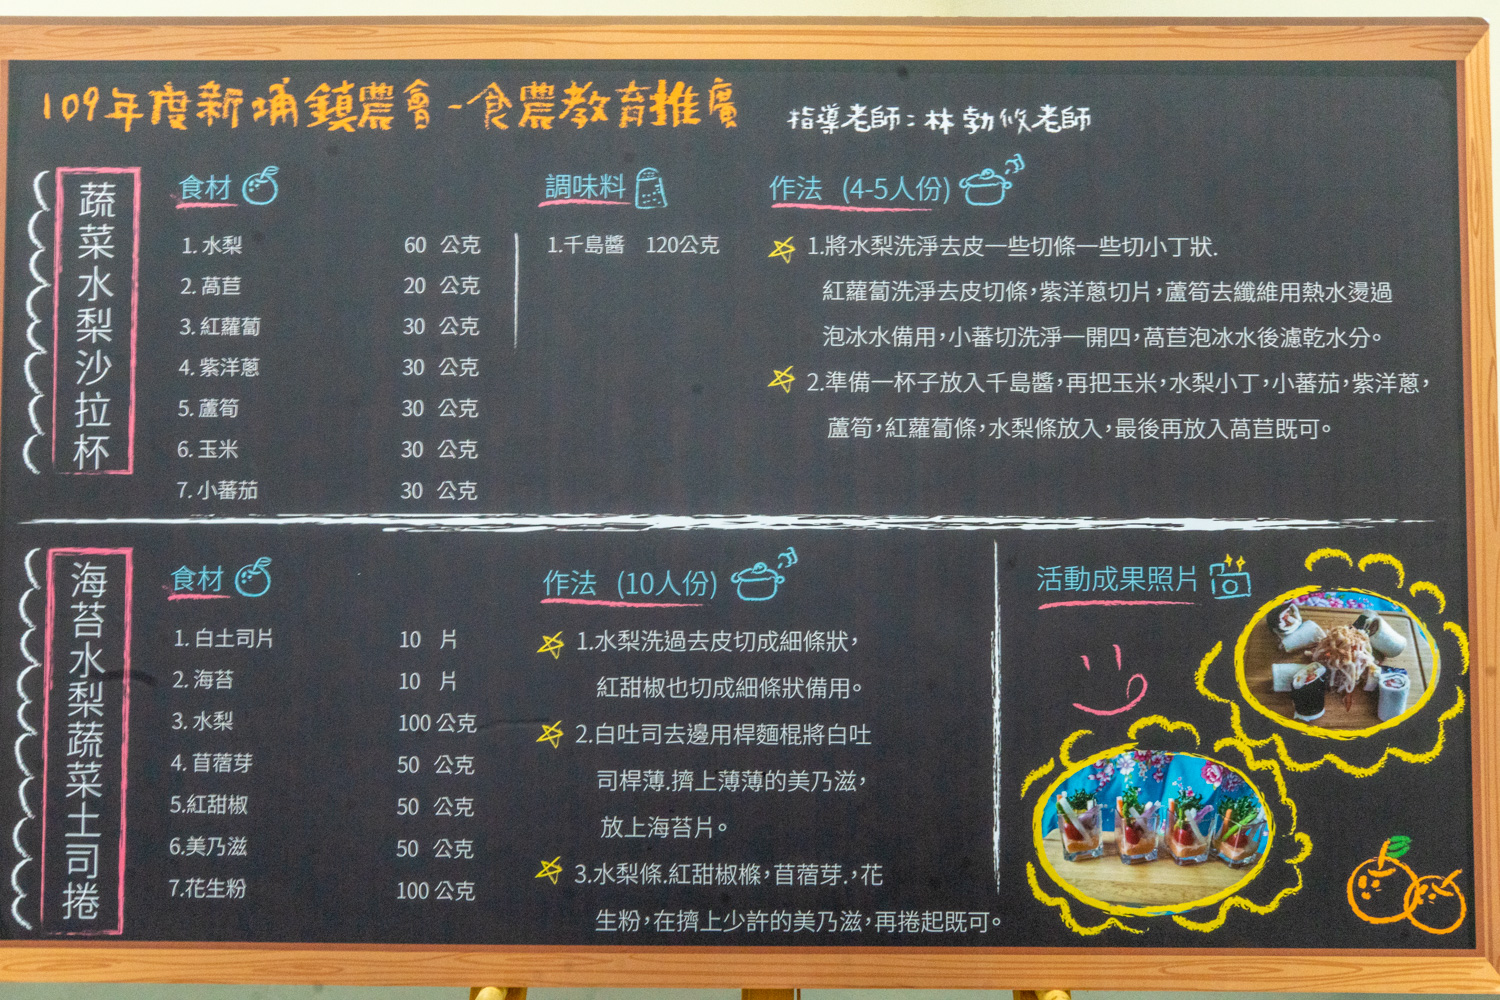 109年度新埔鎮農會-食農教育推廣
指導老師:林勃攸老師
蔬菜水梨沙拉杯
食材
1. 水梨 60 公克
2. 萵苣 20 公克
3. 紅蘿蔔 30 公克
4. 紫洋蔥 30 公克
5. 蘆筍 30 公克
6. 玉米 30 公克
7. 小蕃茄 30 公克
調味料
1.千島醬 120公克
作法 (4-5人份)
1.將水梨洗淨去皮一些切條一些切小丁狀.
紅蘿蔔洗淨去皮切條,紫洋蔥切片,蘆筍去纖維用熱水燙過
泡冰水備用,小蕃切洗淨一開四,萵苣泡冰水後濾乾水分。
2.準備一杯子放入千島醬,再把玉米,水梨小丁,小蕃茄,紫洋蔥,
蘆筍,紅蘿蔔條,水梨條放入,最後再放入萵苣既可。
海苔水梨蔬菜土司捲
食材
1. 白土司片 10 片
2. 海苔 10 片
3. 水梨 100 公克
4. 苜蓿芽 50 公克
5.紅甜椒 50 公克
6.美乃滋 50 公克
7.花生粉 100 公克
作法 (10人份)
1.水梨洗過去皮切成細條狀,
紅甜椒也切成細條狀備用。
2.白吐司去邊用桿麵棍將白吐
司桿薄.擠上薄薄的美乃滋,
放上海苔片。
3.水梨條.紅甜椒樤,苜蓿芽.,花
生粉,在擠上少許的美乃滋,再捲起既可。
活動成果照片